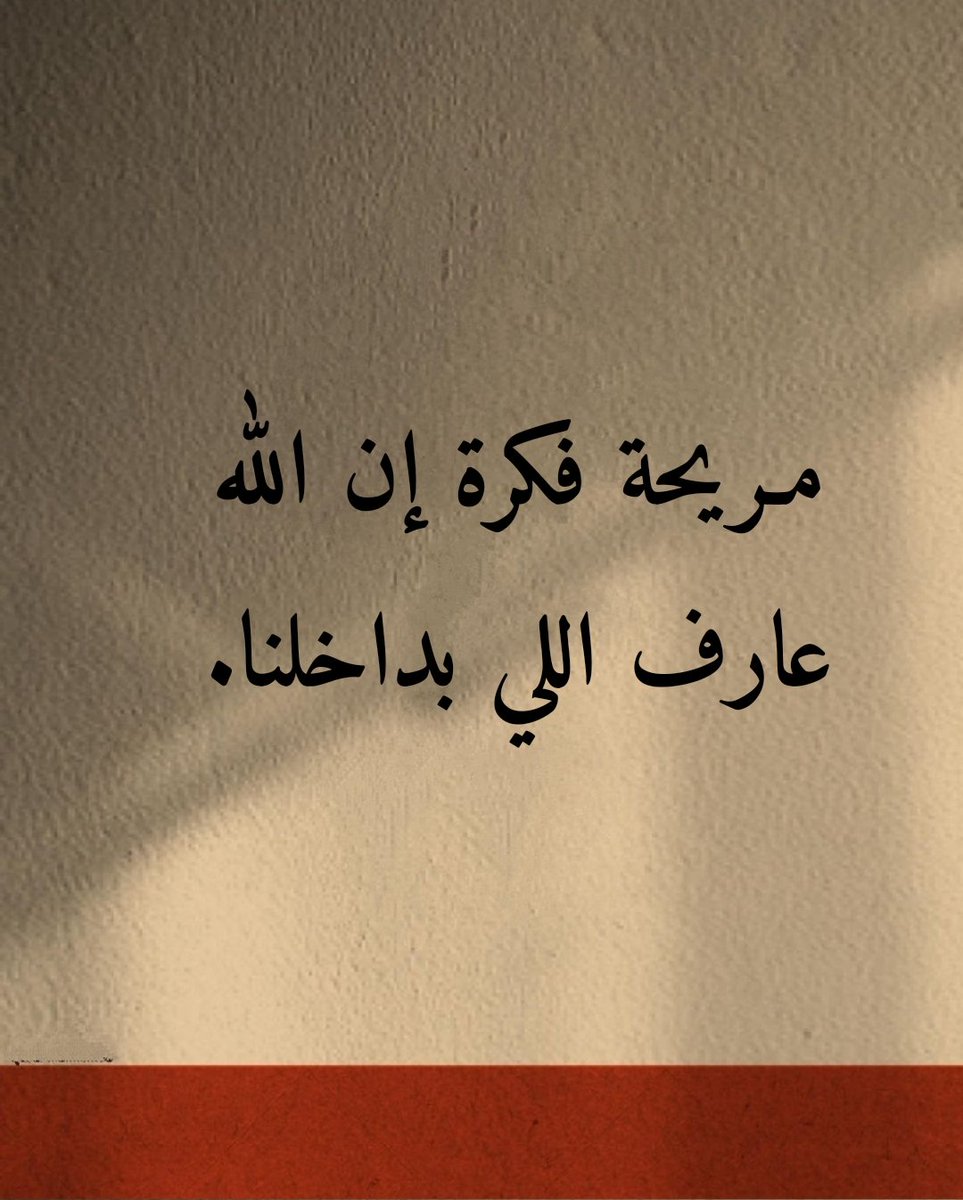 مريحة فكرة إن الله
عارف اللي بداخلنا.